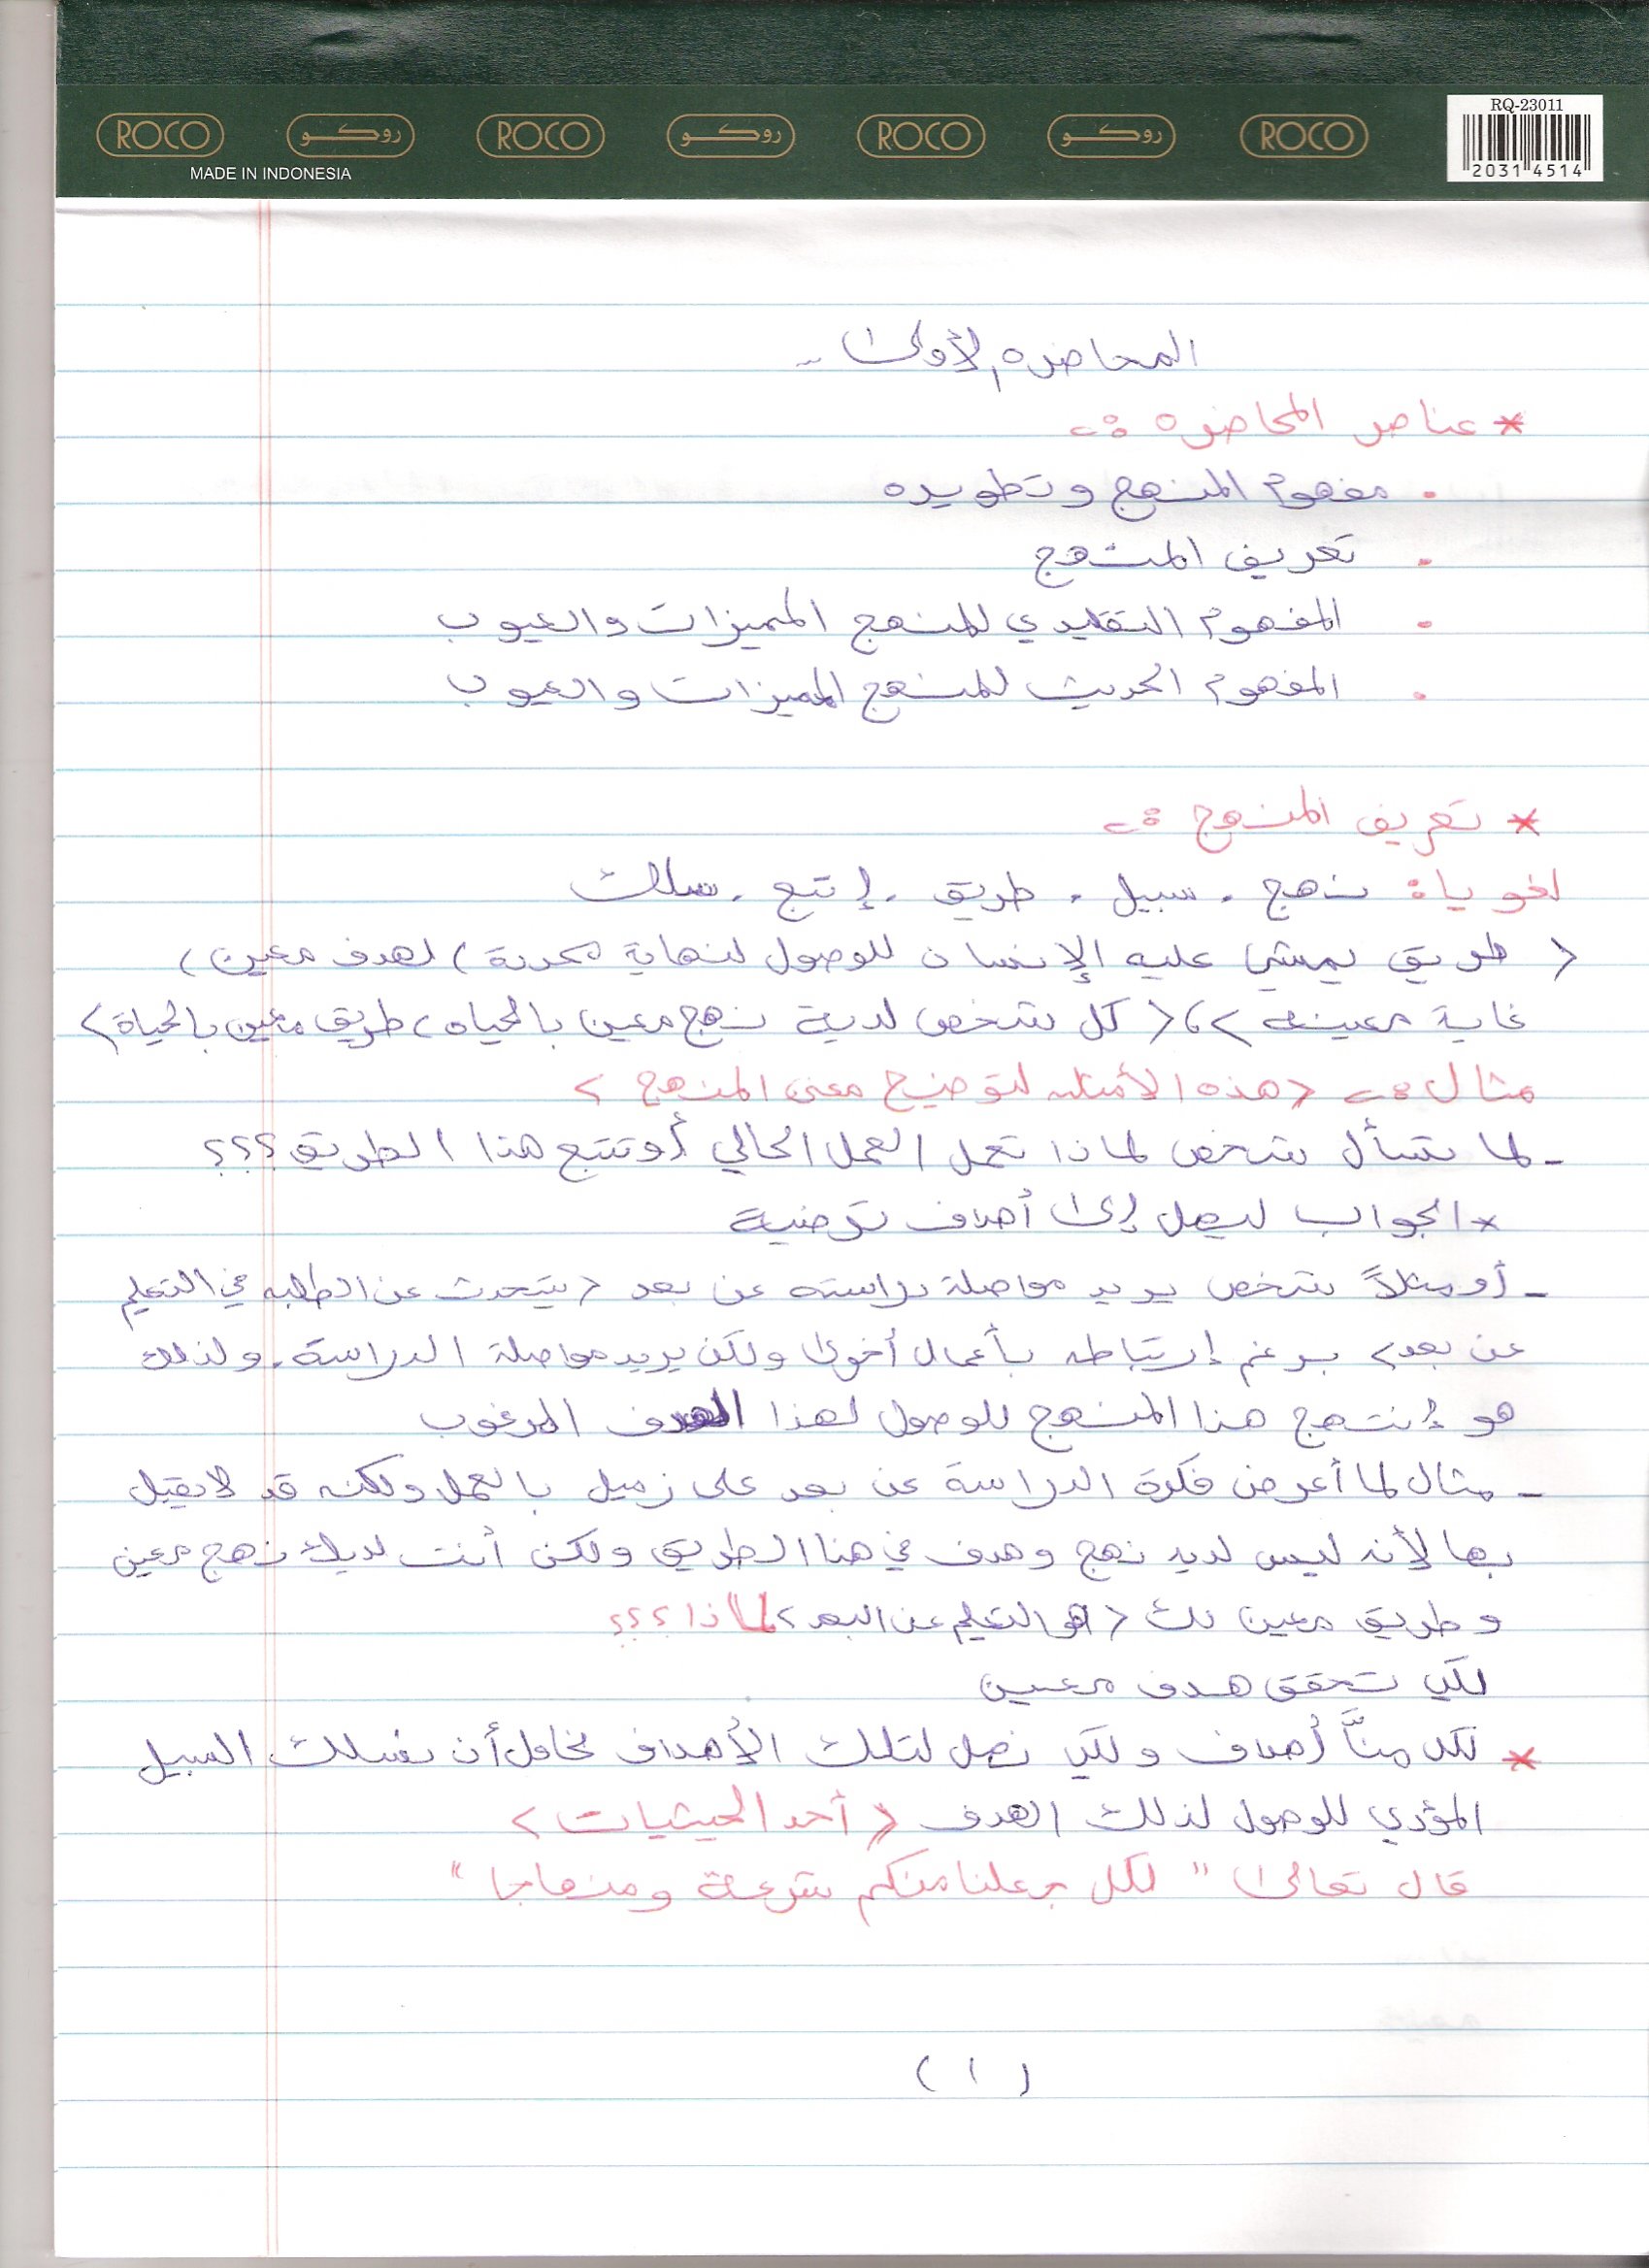 RQ-23011
ROCO روكو ROCO روكو ROCO روكو ROCO
2031 4514
MADE IN INDONESIA
المحاضره الأولى ..
* عناصر المحاضره :-
. مفهوم المنهج وتطويره
. تعريف المنهج
. المفهوم التقليدي للمنهج المميزات والعيوب
. المفهوم الحديث للمنهج المميزات والعيوب
* تعريف المنهج :-
لغويا: نهج . سبيل . طريق . إتبع . سلك
< طريق يمشي عليه الإنسان للوصول لنهاية محددة ( لهدف معين )
غاية معينه > ، < كل شخص لدية نهج معين بالحياه ، طريق معين بالحياة >
مثال :- < هذه الأمثله لتوضيح معنى المنهج >
- لما تسأل شخص لماذا تعمل العمل الحالي أو تتبع هذا الطريق ؟؟؟
* الجواب ليصل إلى أهداف ترضية
- أو مثلاً شخص يريد مواصلة دراسته عن بعد < يتحدث عن الطلبه في التعليم
عن بعد > برغم إرتباطه بأعمال أخرى ولكن يريد مواصلة الدراسة . ولذلك
هو إنتهج هذا المنهج للوصول لهذا الهدف المرغوب
- مثال لما أعرض فكرة الدراسة عن بعد على زميل بالعمل ولكنه قد لا يقبل
بها لأنه ليس لديه نهج وهدف في هذا الطريق ولكن أنت لديك نهج معين
وطريق معين لك < هو التعليم عن البعد > لماذا ؟؟؟
لكي تحقق هدف معين
* لكل منَّا أهداف ولكي نصل لتلك الأهداف نحاول أن نسلك السبيل
المؤدي للوصول لذلك الهدف < أحد الحيثيات >
قال تعالى " لكل جعلنا منكم شرعة ومنهاجا "
( ١ )